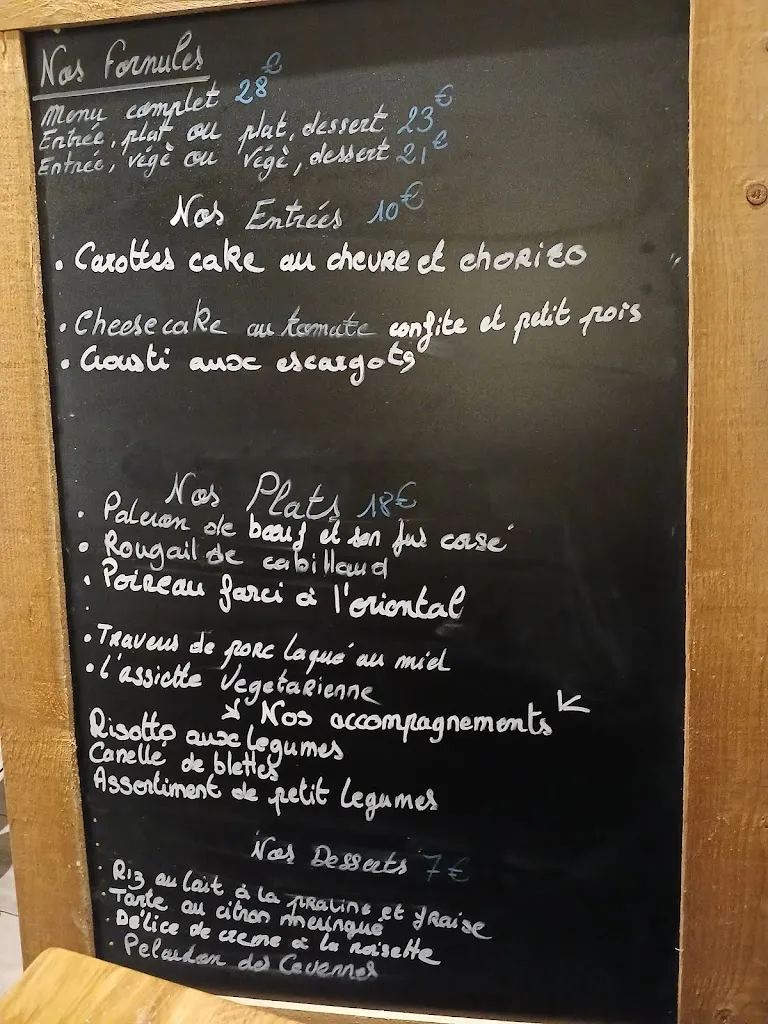 Nos Formules
Menu complet 28€
Entrée, plat ou plat, dessert 23€
Entrée, végé ou végé, dessert 21€
Nos Entrées 10€
• Carottes cake au chevre et chorizo
• Cheesecake au tomate confite et petit pois
• Crousti aux escargots
Nos Plats 18€
• Paleron de bœuf et son jus corsé
• Rougail de cabillaud
• Poireau farci à l'oriental
• Travers de porc laqué au miel
• L'assiette Vegetarienne
Nos accompagnements
Risotto aux legumes
Canelle de blettes
Assortiment de petit legumes
Nos Desserts 7€
• Riz au lait à la praline et fraise
• Tarte au citron meringué
• Délice de creme à la noisette
• Pelardon des Cevennes